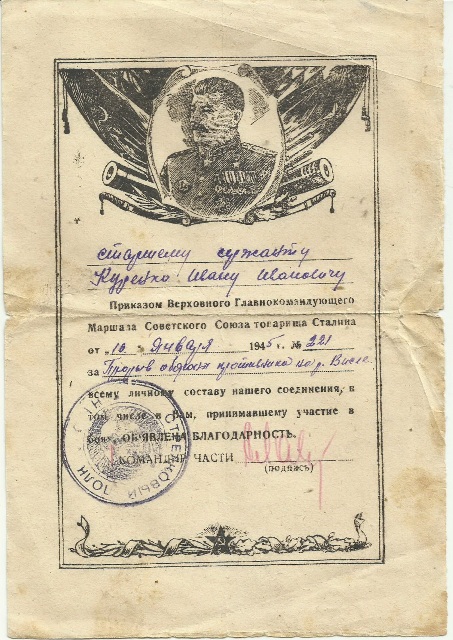 старшему сержанту
Курейко Ивану Ивановичу
Приказом Верховного Главнокомандующего
Маршала Советского Союза товарища Сталина
от „16" Января 1945 г. № 221
за Прорыв обороны противника на р. Висле
всему личному составу нашего соединения, в
том числе и Вам, принимавшему участие в
боях, ОБ'ЯВЛЕНА БЛАГОДАРНОСТЬ.
КОМАНДИР ЧАСТИ
(подпись)
ПОЛК